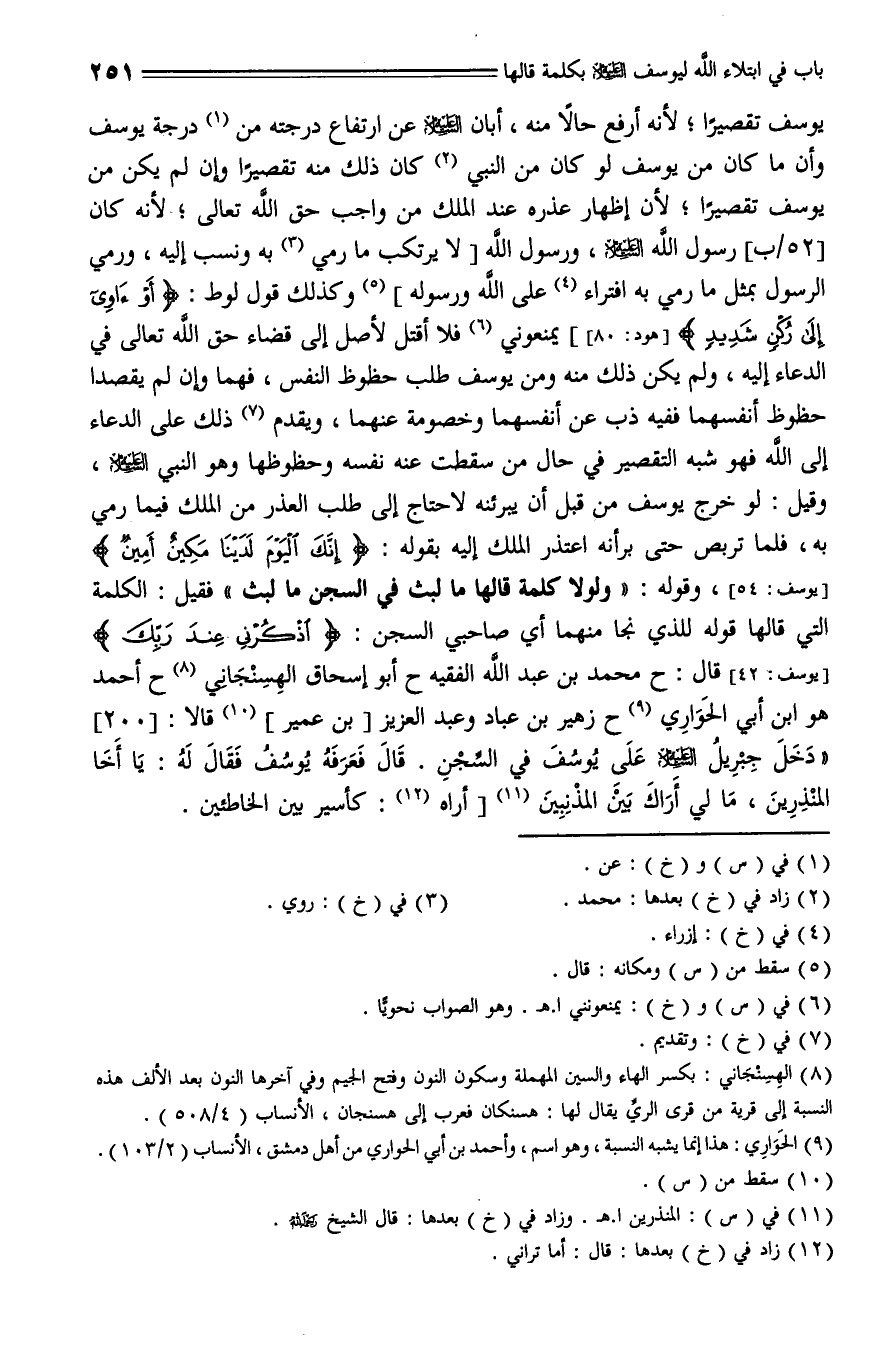 باب في ابتلاء اللَّه ليوسف عليه السلام بكلمة قالها ٢٥١
يوسف تقصيرًا ؛ لأنه أرفع حالًا منه ، أبان عليه السلام عن ارتفاع درجته من (١) درجة يوسف
وأن ما كان من يوسف لو كان من النبي (٢) كان ذلك منه تقصيرًا وإن لم يكن من
يوسف تقصيرًا ؛ لأن إظهار عذره عند الملك من واجب حق اللَّه تعالى ؛ لأنه كان
[٥٢/ب] رسول اللَّه عليه السلام ، ورسول اللَّه [ لا يرتكب ما رمي (٣) به ونسب إليه ، ورمي
الرسول بمثل ما رمي به افتراء (٤) على اللَّه ورسوله ] (٥) وكذلك قول لوط : ﴿ أَوْ ءَاوِىٓ
إِلَىٰ رُكْنٍ شَدِيدٍ ﴾ [هود: ٨٠] ] يمنعوني (٦) فلا أقتل لأصل إلى قضاء حق اللَّه تعالى في
الدعاء إليه ، ولم يكن ذلك منه ومن يوسف طلب حظوظ النفس ، فهما وإن لم يقصدا
حظوظ أنفسهما ففيه ذب عن أنفسهما وخصومة عنهما ، ويقدم (٧) ذلك على الدعاء
إلى اللَّه فهو شبه التقصير في حال من سقطت عنه نفسه وحظوظها وهو النبي عليه السلام ،
وقيل : لو خرج يوسف من قبل أن يبرئنه لاحتاج إلى طلب العذر من الملك فيما رمي
به ، فلما تربص حتى برأنه اعتذر الملك إليه بقوله : ﴿ إِنَّكَ ٱلْيَوْمَ لَدَيْنَا مَكِينٌ أَمِينٌ ﴾
[يوسف: ٥٤] ، وقوله : « ولولا كلمة قالها ما لبث في السجن ما لبث » فقيل : الكلمة
التي قالها قوله للذي نجا منهما أي صاحبي السجن : ﴿ ٱذْكُرْنِى عِندَ رَبِّكَ ﴾
[يوسف: ٤٢] قال : ح محمد بن عبد اللَّه الفقيه ح أبو إسحاق الهِسِنْجَانِي (٨) ح أحمد
هو ابن أبي الحَوَارِي (٩) ح زهير بن عباد وعبد العزيز [ بن عمير ] (١٠) قالا : [٢٠٠]
« دَخَلَ جِبْرِيلُ عليه السلام عَلَى يُوسُفَ في السِّجْنِ . قَالَ فَعَرَفَهُ يُوسُفُ فَقَالَ لَهُ : يَا أَخَا
المنْذِرِينَ ، مَا لي أَرَاكَ بَيْنَ المذْنِبِينَ (١١) [ أراه (١٢) : كأسير بين الخاطئين .
(١) في ( س ) و ( خ ) : عن .
(٢) زاد في ( خ ) بعدها : محمد . (٣) في ( خ ) : روي .
(٤) في ( خ ) : إزراء .
(٥) سقط من ( س ) ومكانه : قال .
(٦) في ( س ) و ( خ ) : يمنعونني ا.هـ . وهو الصواب نحويًّا .
(٧) في ( خ ) : وتقديم .
(٨) الهِسِنْجَاني : بكسر الهاء والسين المهملة وسكون النون وفتح الجيم وفي آخرها النون بعد الألف هذه
النسبة إلى قرية من قرى الريِّ يقال لها : هسنكان فعرب إلى هسنجان ، الأنساب ( ٥٠٨/٤ ) .
(٩) الحَوَارِي : هذا إنما يشبه النسبة ، وهو اسم ، وأحمد بن أبي الحواري من أهل دمشق ، الأنساب ( ١٠٣/٢ ) .
(١٠) سقط من ( س ) .
(١١) في ( س ) : المنذرين ا.هـ . وزاد في ( خ ) بعدها : قال الشيخ رحمه الله .
(١٢) زاد في ( خ ) بعدها : قال : أما تراني .